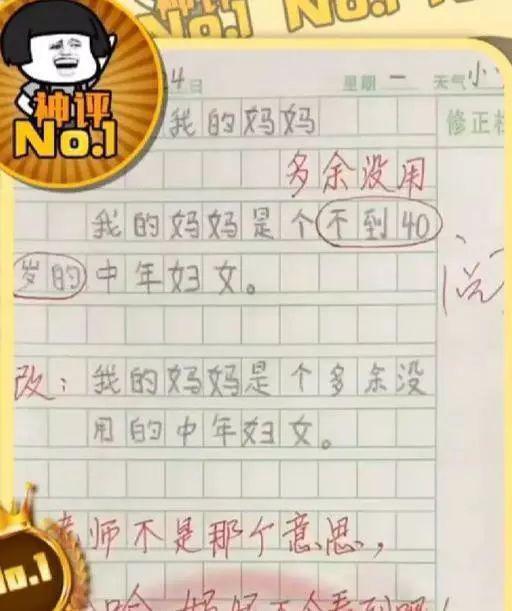 No.1
神评
No.1
4日 星期一 天气小
我的妈妈
修正栏
多余没用
我的妈妈是个不到40
岁的中年妇女。
改：我的妈妈是个多余没
用的中年妇女。
老师不是那个意思，
No.1